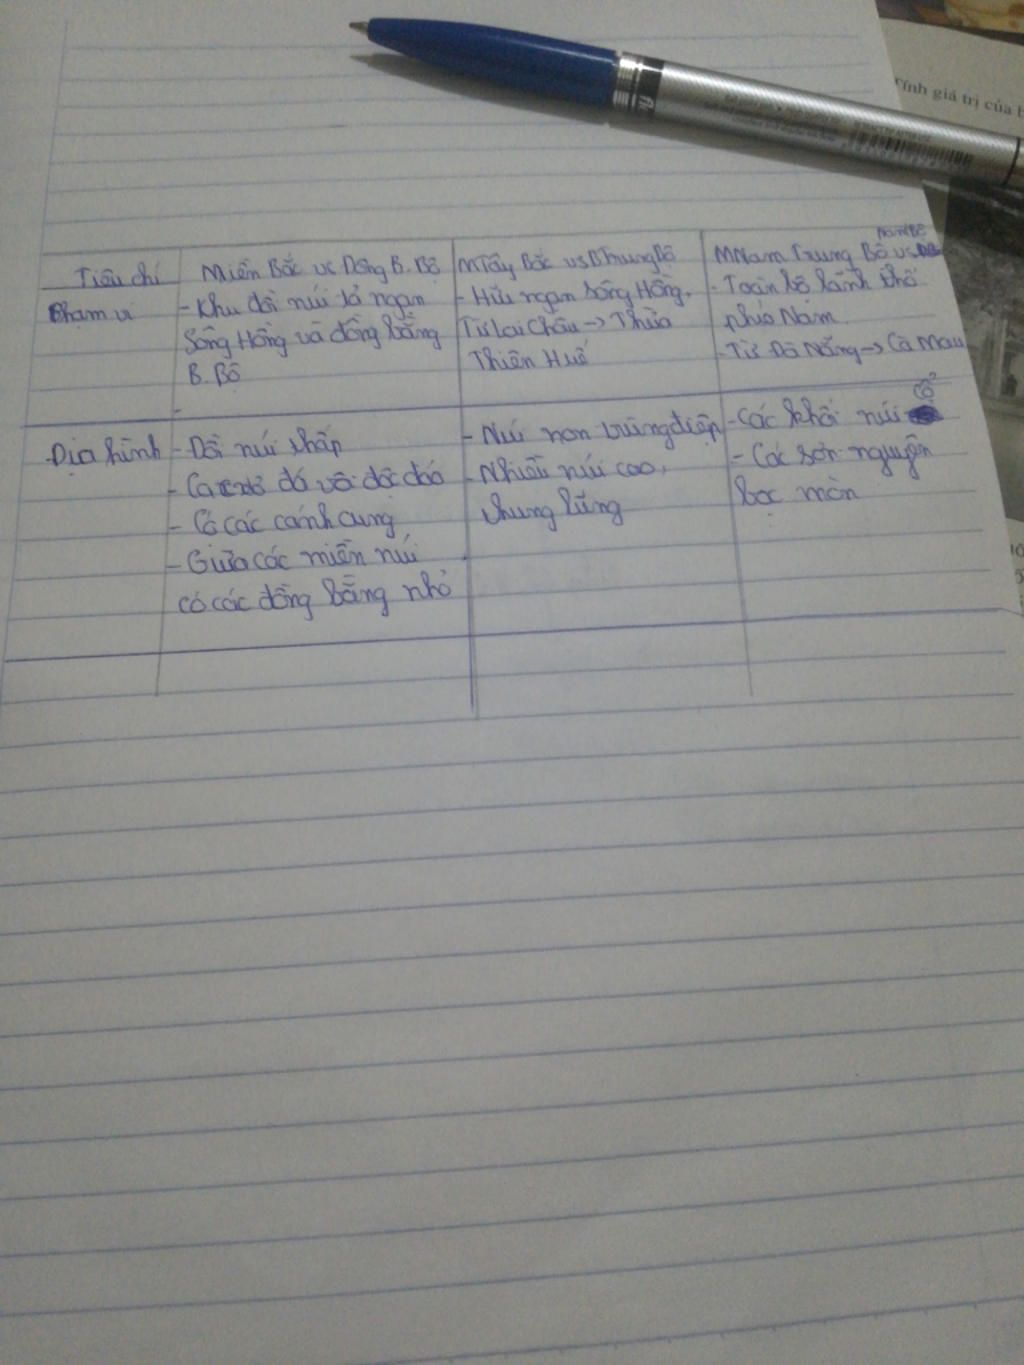 rính giá trị của b
Tiêu chí
Miền Bắc vs Đông B. Bộ
M Tây Bắc vs B Trung Bộ
M Nam Trung Bộ vs
Nam Bộ
Phạm vi
- Khu đồi núi tả ngạn
Sông Hồng và đồng bằng
B. Bộ
-
- Hữu ngạn Sông Hồng.
Từ Lai Châu → Thừa
Thiên Huế
- Toàn bộ lãnh thổ
phía Nam
- Từ Đà Nẵng → Cà Mau
Địa hình
- Đồi núi thấp
- Caxtơ đá vôi độc đáo
- Có các cánh cung
- Giữa các miền núi
có các đồng bằng nhỏ
- Núi non trùng điệp
- Nhiều núi cao,
thung lũng
- Các khối núi cổ
- Các sơn nguyên
bóc mòn